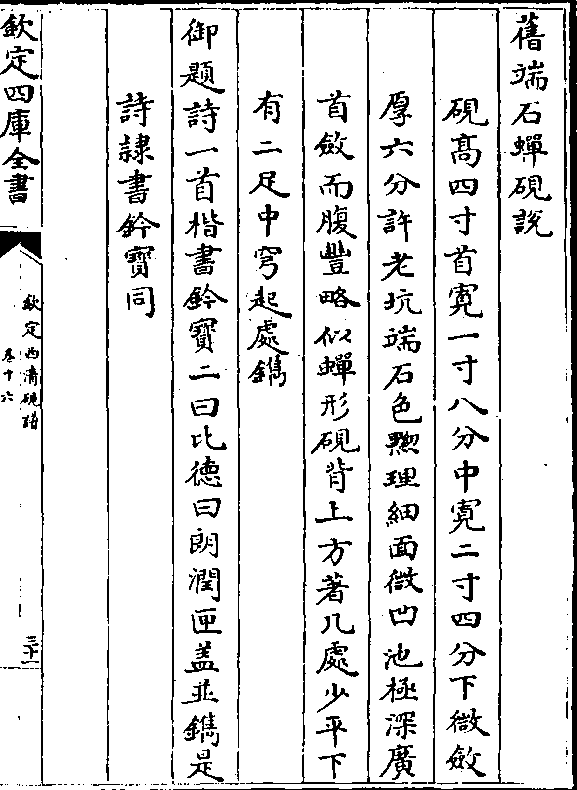 舊端石蟬硯說
硯髙四寸首寛一寸八分中寛二寸四分下微斂
厚六分許老坑端石色黝理細面微凹池極深廣
首斂而腹豐略似蟬形硯背上方著几處少平下
有二足中穹起處鐫
御題詩一首楷書鈐寶二曰比德曰朗潤匣盖並鐫是
詩隷書鈐寶同
欽定四庫全書
欽定西清硯譜
卷十六
三十一